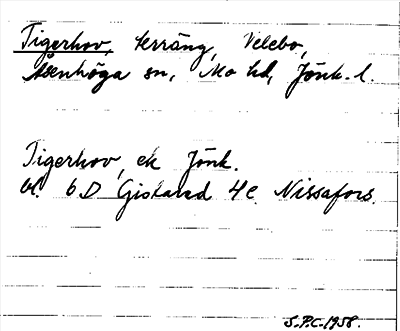 Tigerhov, terräng, Velebo,
Åsenhöga sn, Mo hd, Jönk. l.
Tigerhov, ek Jönk.
bl. 6 D Gislaved 4 c Nissafors.
S.P.C. 1958.